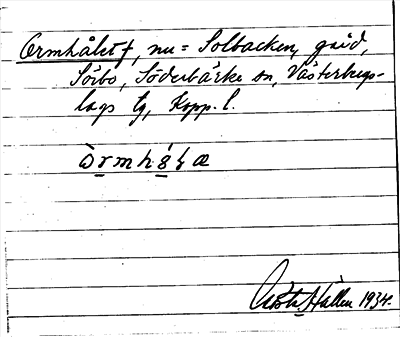 Ormhålet †, nu = Solbacken, gård,
Sörbo, Söderbärke sn, Västerbergs-
lags tg, Kopp. l.
òrmhó̤ɫæ
Gösta Hallén 1934.